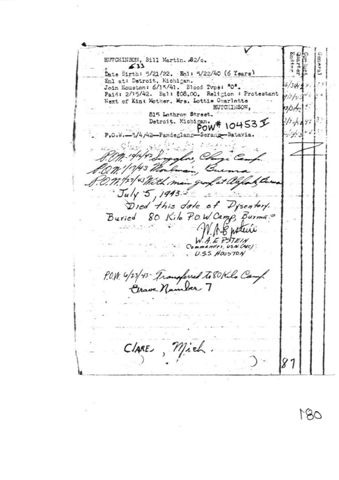 HUTCHINSON, Bill Martin. S2/c.
Date Birth: 5/21/22. Enl: 5/22/40 (6 Years)
Enl at: Detroit, Michigan.
Join Houston: 6/15/41. Blood Type: "O".
Paid: 2/15/42. Bal: $08.00. Religion : Protestant
Next of Kin: Mother, Mrs. Lottie Charlotte
HUTCHINSON,
815 Lothrow Street,
Detroit, Michigan.
POW# 10453 I
P.O.W.—3/4/42—Pandeglang—Serang—Batavia.
P.O.W. Singapore, Changi Camp
P.O.W. Moulmein, Burma
P.O.W. With main group at
July 5, 1943
Died this date of Dysentery.
Buried 80 Kilo P.O.W Camp, Burma.
W.A. Epstein
W.A. EPSTEIN
Commander, USN (MC)
U.S.S. HOUSTON
P.O.W. Transferred to 80 Kilo Camp
Grave Number 7
CLARE, Mich.
87
180